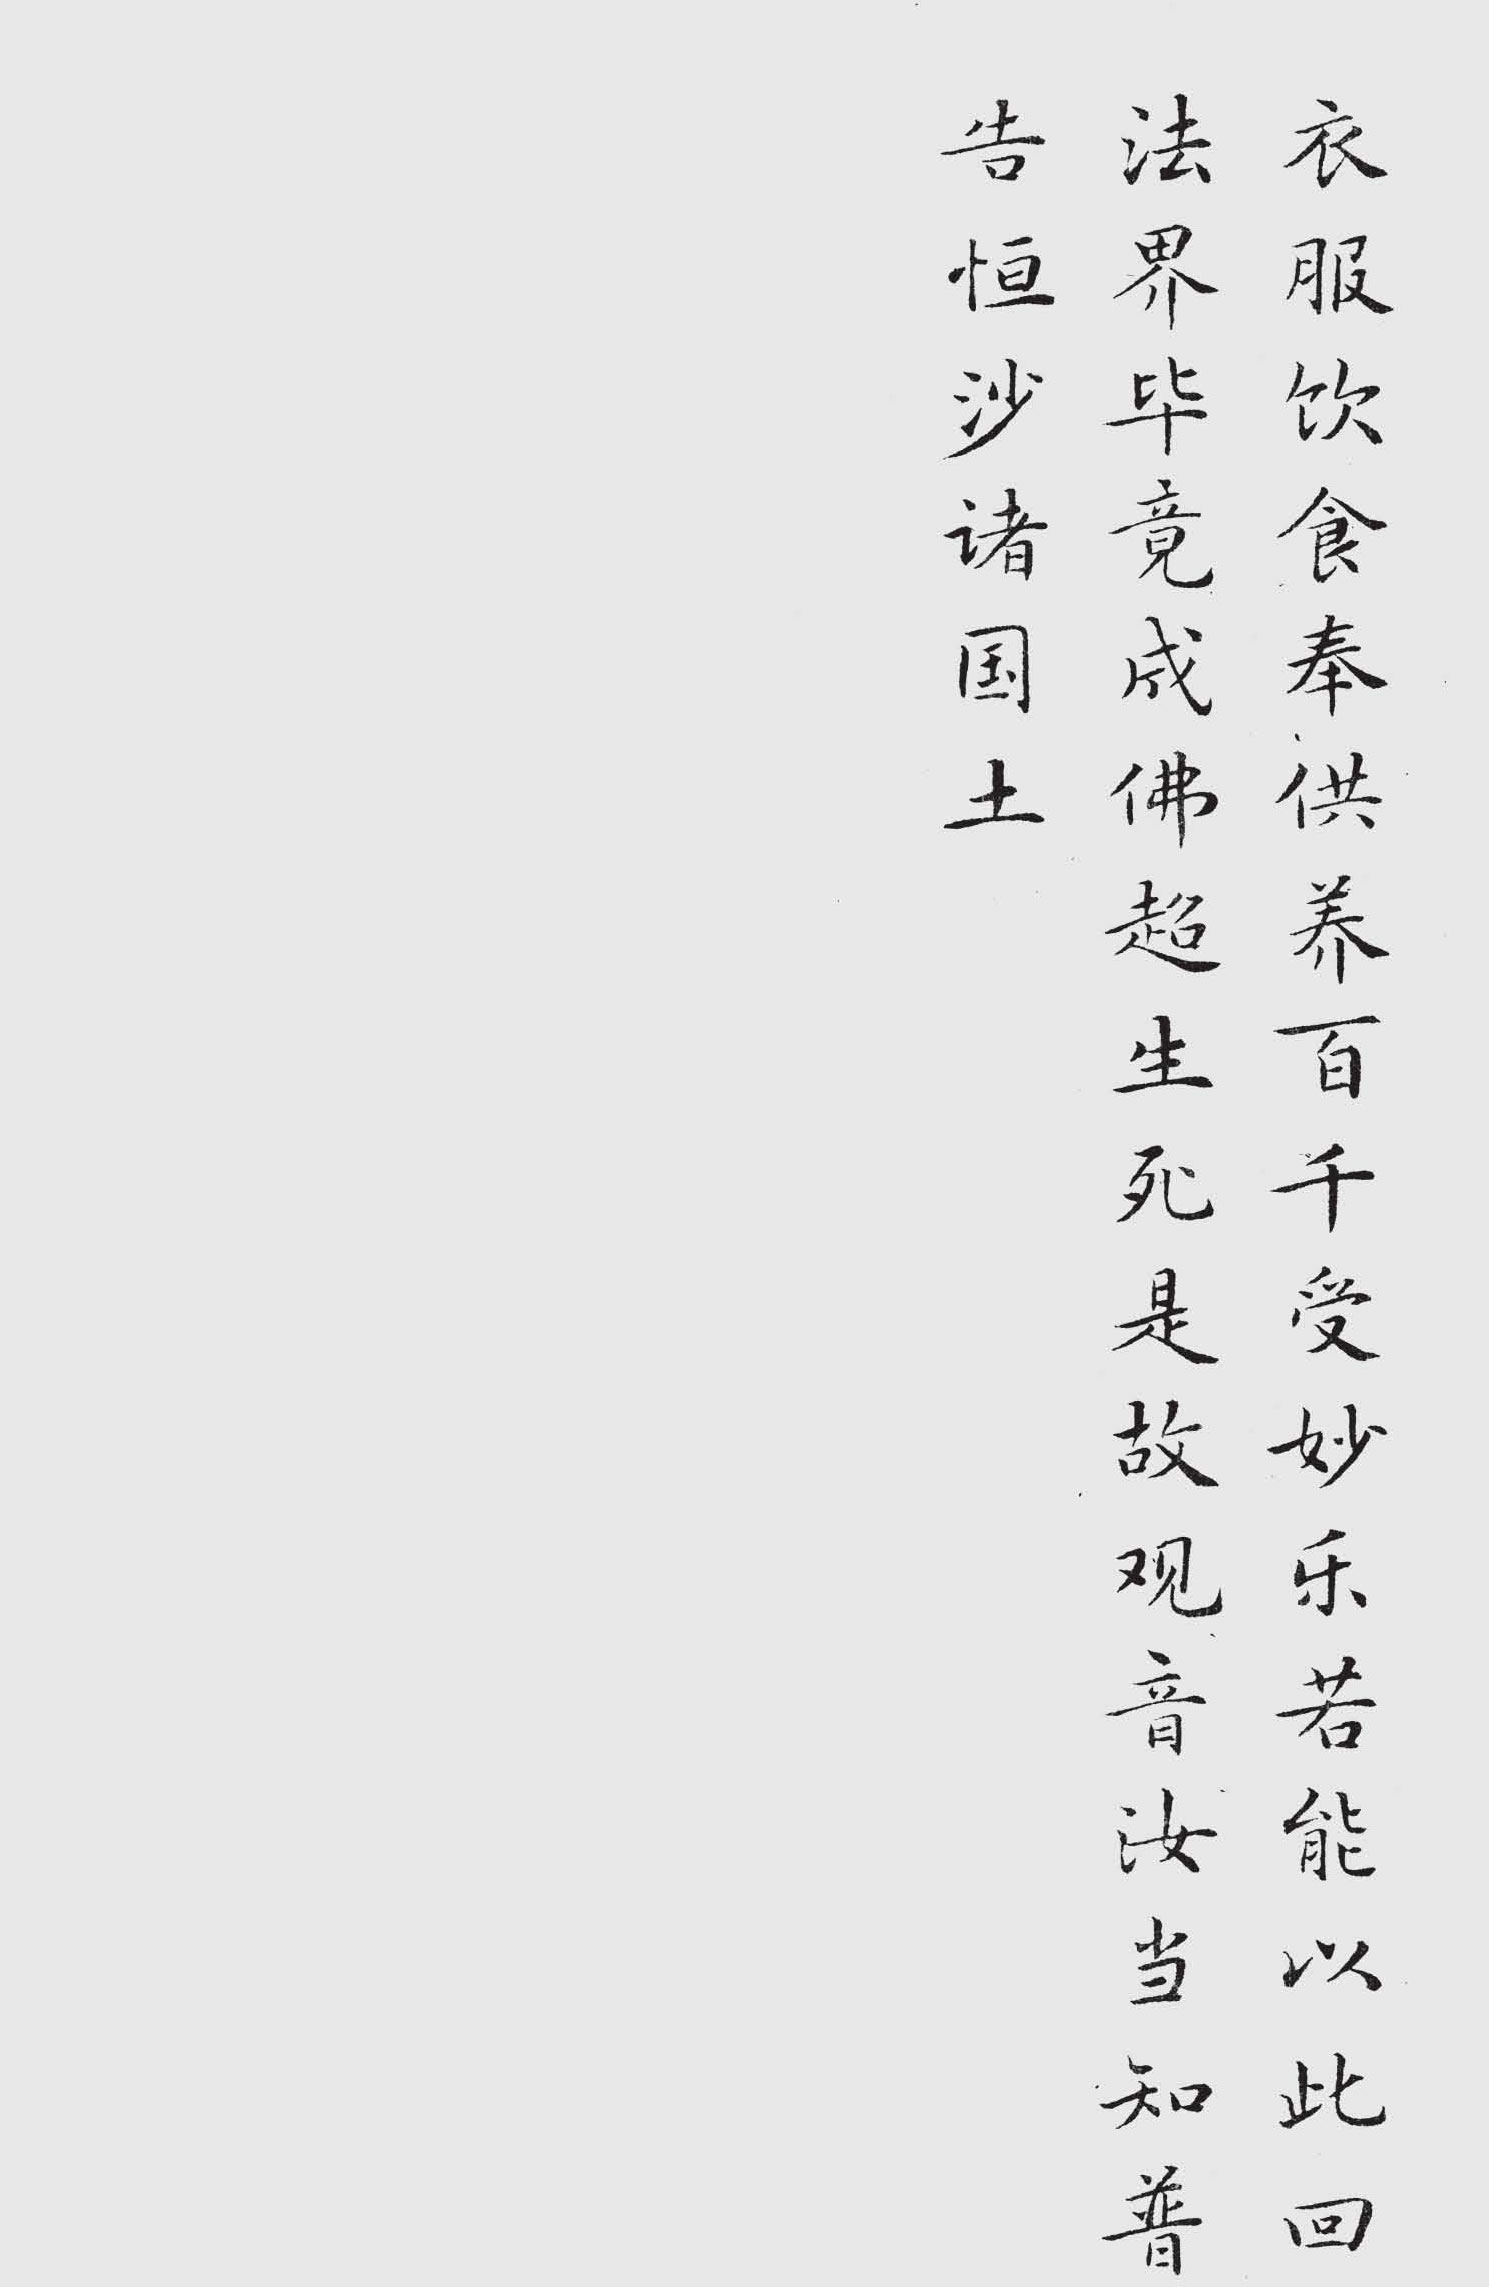 衣服饮食奉供养百千受妙乐若能以此回
法界毕竟成佛超生死是故观音汝当知普
告恒沙诸国土